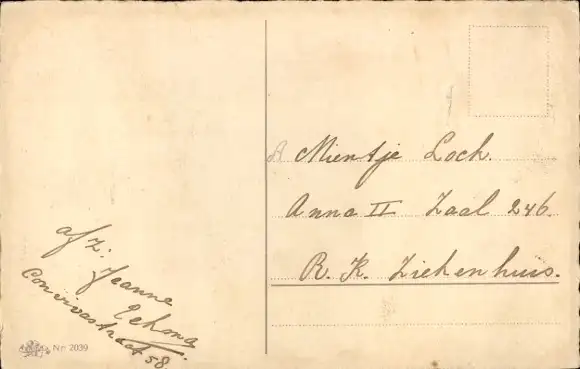 afz:
Jeanne
58
Nr. 2039
Mientje Loch.
Anna II Zaal 246.
R. K. Ziekenhuis.